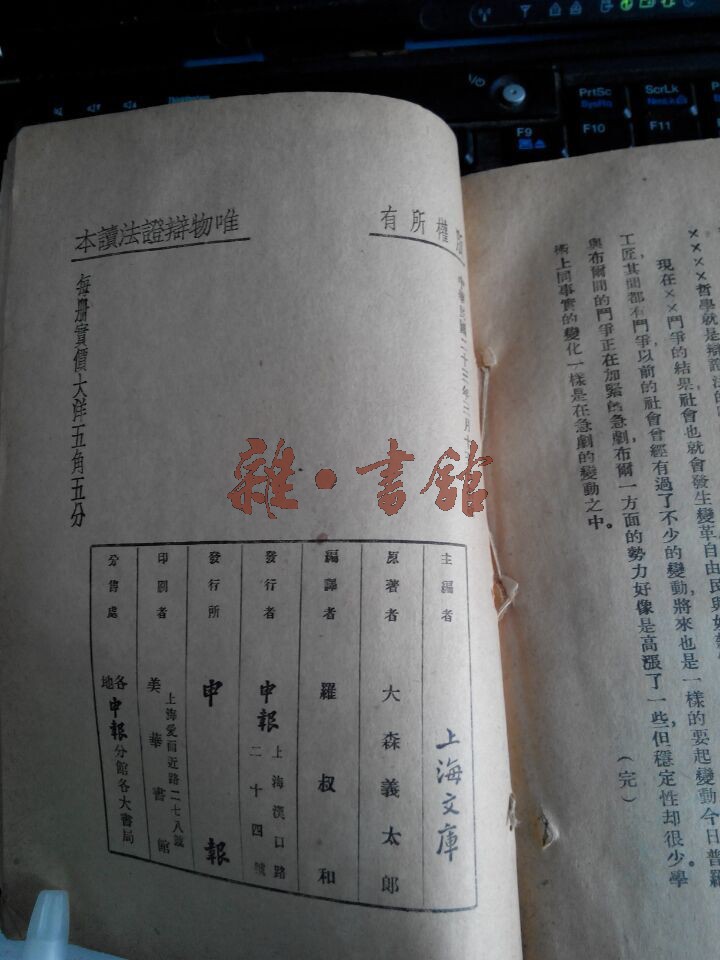 PrtSc
SysRq
ScrLk
F9
F10
F11
××××哲學就是辯證法的
現在××鬥爭的結果,社會也就會發生變革自由民與奴
工匠,其間都有鬥爭,以前的社會曾經有過了不少的變動,將來也是一樣的要起變動,今日普羅
與布爾間的鬥爭正在加緊的急劇,布爾一方面的勢力好像是高漲了一些,但穩定性却很少。學
術上同事實的變化一樣是在急劇的變動之中。
(完)
權所有
中華民國二十三年三月
唯物辯證法讀本
每册實價大洋五角五分
雜·書館
主編者 上海文庫
原著者 大森義太郎
編譯者 羅叔和
發行者 申報 上海漢口路二十四號
發行所 申報
印刷者 上海愛而近路二七八號 美華書館
分售處 各地申報分館各大書局